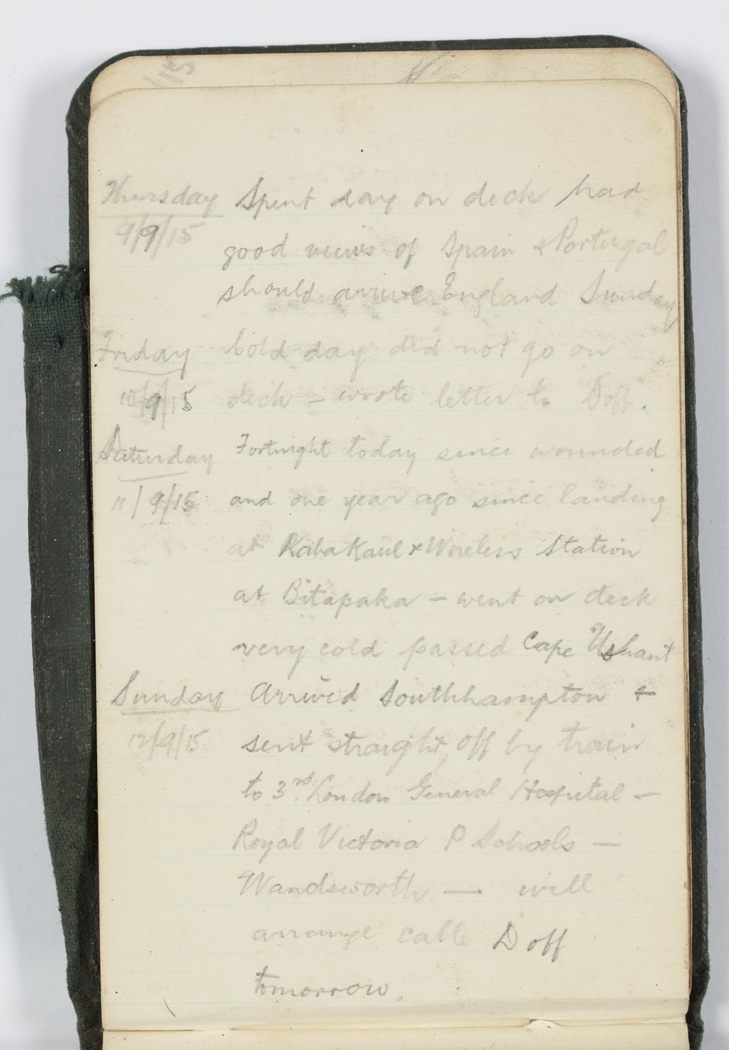 Thursday Spent day on deck had
9/9/15 good views of Spain & Portugal
should arrive England Sunday
Friday Cold day did not go on
10/9/15 deck – wrote letter to Doff.
Saturday Fortnight today since wounded
11/9/15 and one year ago since landing
at Kabakaul & Wireless Station
at Bitapaka – went on deck
very cold passed Cape Ushant
Sunday Arrived Southhampton &
12/9/15 sent straight off by train
to 3rd London General Hospital –
Royal Victoria P Schools –
Wandsworth. — will
arrange cable Doff
tomorrow.